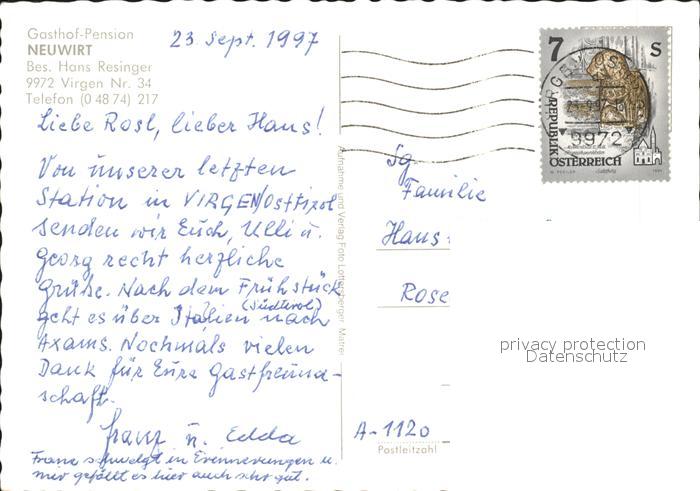 Gasthof-Pension
NEUWIRT
Bes. Hans Resinger
9972 Virgen Nr. 34
Telefon (0 48 74) 217
23. Sept. 1997
Liebe Rosl, lieber Hans!
Von unserer letzten
Station in VIRGEN/Osttirol
senden wir Euch, Ulli u.
Georg recht herzliche
Grüße. Nach dem Frühstück
geht es über Italien (Südtirol) nach
Axams. Nochmals vielen
Dank für Eure Gastfreund-
schaft.
Franz u. Edda
Franz schwelgt in Erinnerungen u.
mir gefällt es hier auch sehr gut.
Aufnahme und Verlag Foto Lottersberger, Matrei
7 S
REPUBLIK
ÖSTERREICH
9972
Fam
Familie
Hans
Rose
privacy protection
Datenschutz
A-1120
Postleitzahl